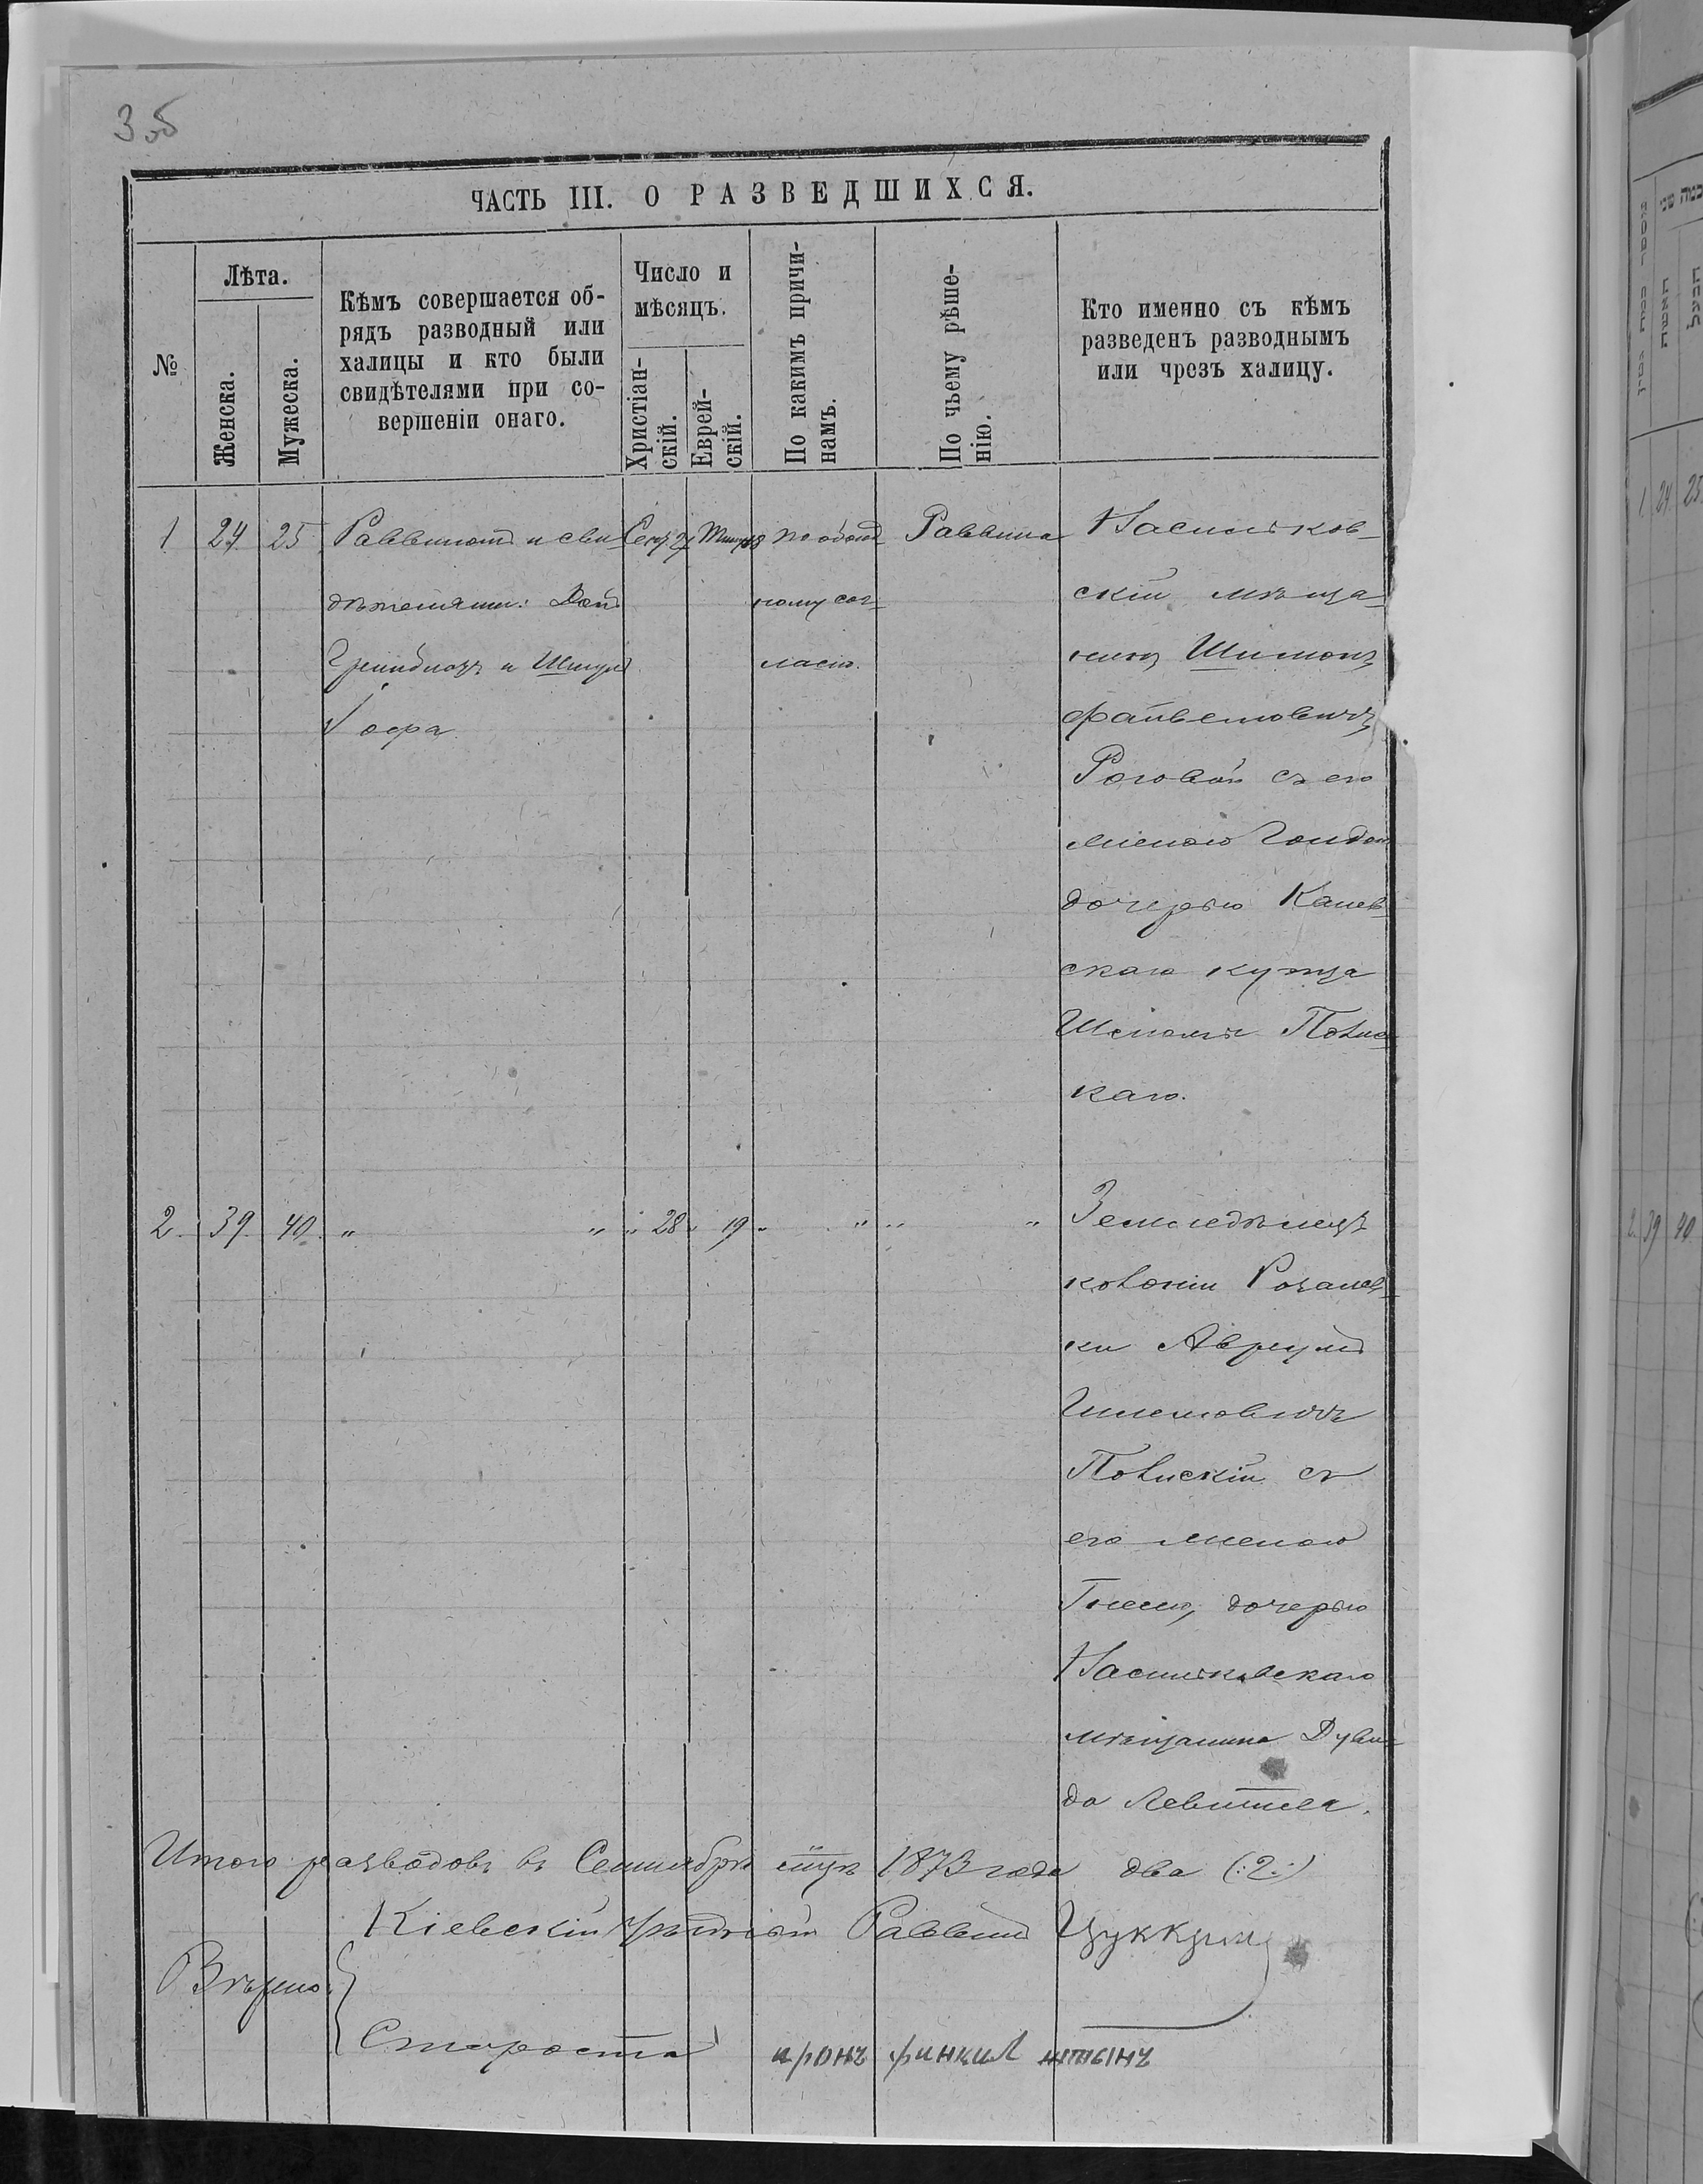 3об
ЧАСТЬ III. О РАЗВЕДШИХСЯ.
№
Лѣта.
Женска.
Мужеска.
Кѣмъ совершается об-
рядъ разводный или
халицы и кто были
свидѣтелями при со-
вершеніи онаго.
Число и
мѣсяцъ.
Христіан-
скій.
Еврей-
скій.
По какимъ причи-
намъ.
По чьему рѣше-
нію.
Кто именно съ кѣмъ
разведенъ разводнымъ
или чрезъ халицу.
1 24 25
Раввиномъ и сви-
дѣтелями:
и Шмуль
Іофа
по обоюд-
ному сог-
ласію.
Раввина
Васильков-
скій мѣща-
нинъ Шимонъ
Файвелювичъ
Роговой съ его
женою
дочерью Канев-
скаго купца
Шлiомы Полис-
каго.
2 39 40 " " " 28 " 19 " " " "
Земледѣлецъ
колоніи Розалев-
ки Аврумъ
Полискій съ
его женою
дочерью
Васильковскаго
мѣщанина Дуви-
да
Итого разводовъ въ Сентябрѣ мѣс. 1873 года два (:2:)
Кіевскій Раввинъ Цуккерм
Вѣрно:
Староста